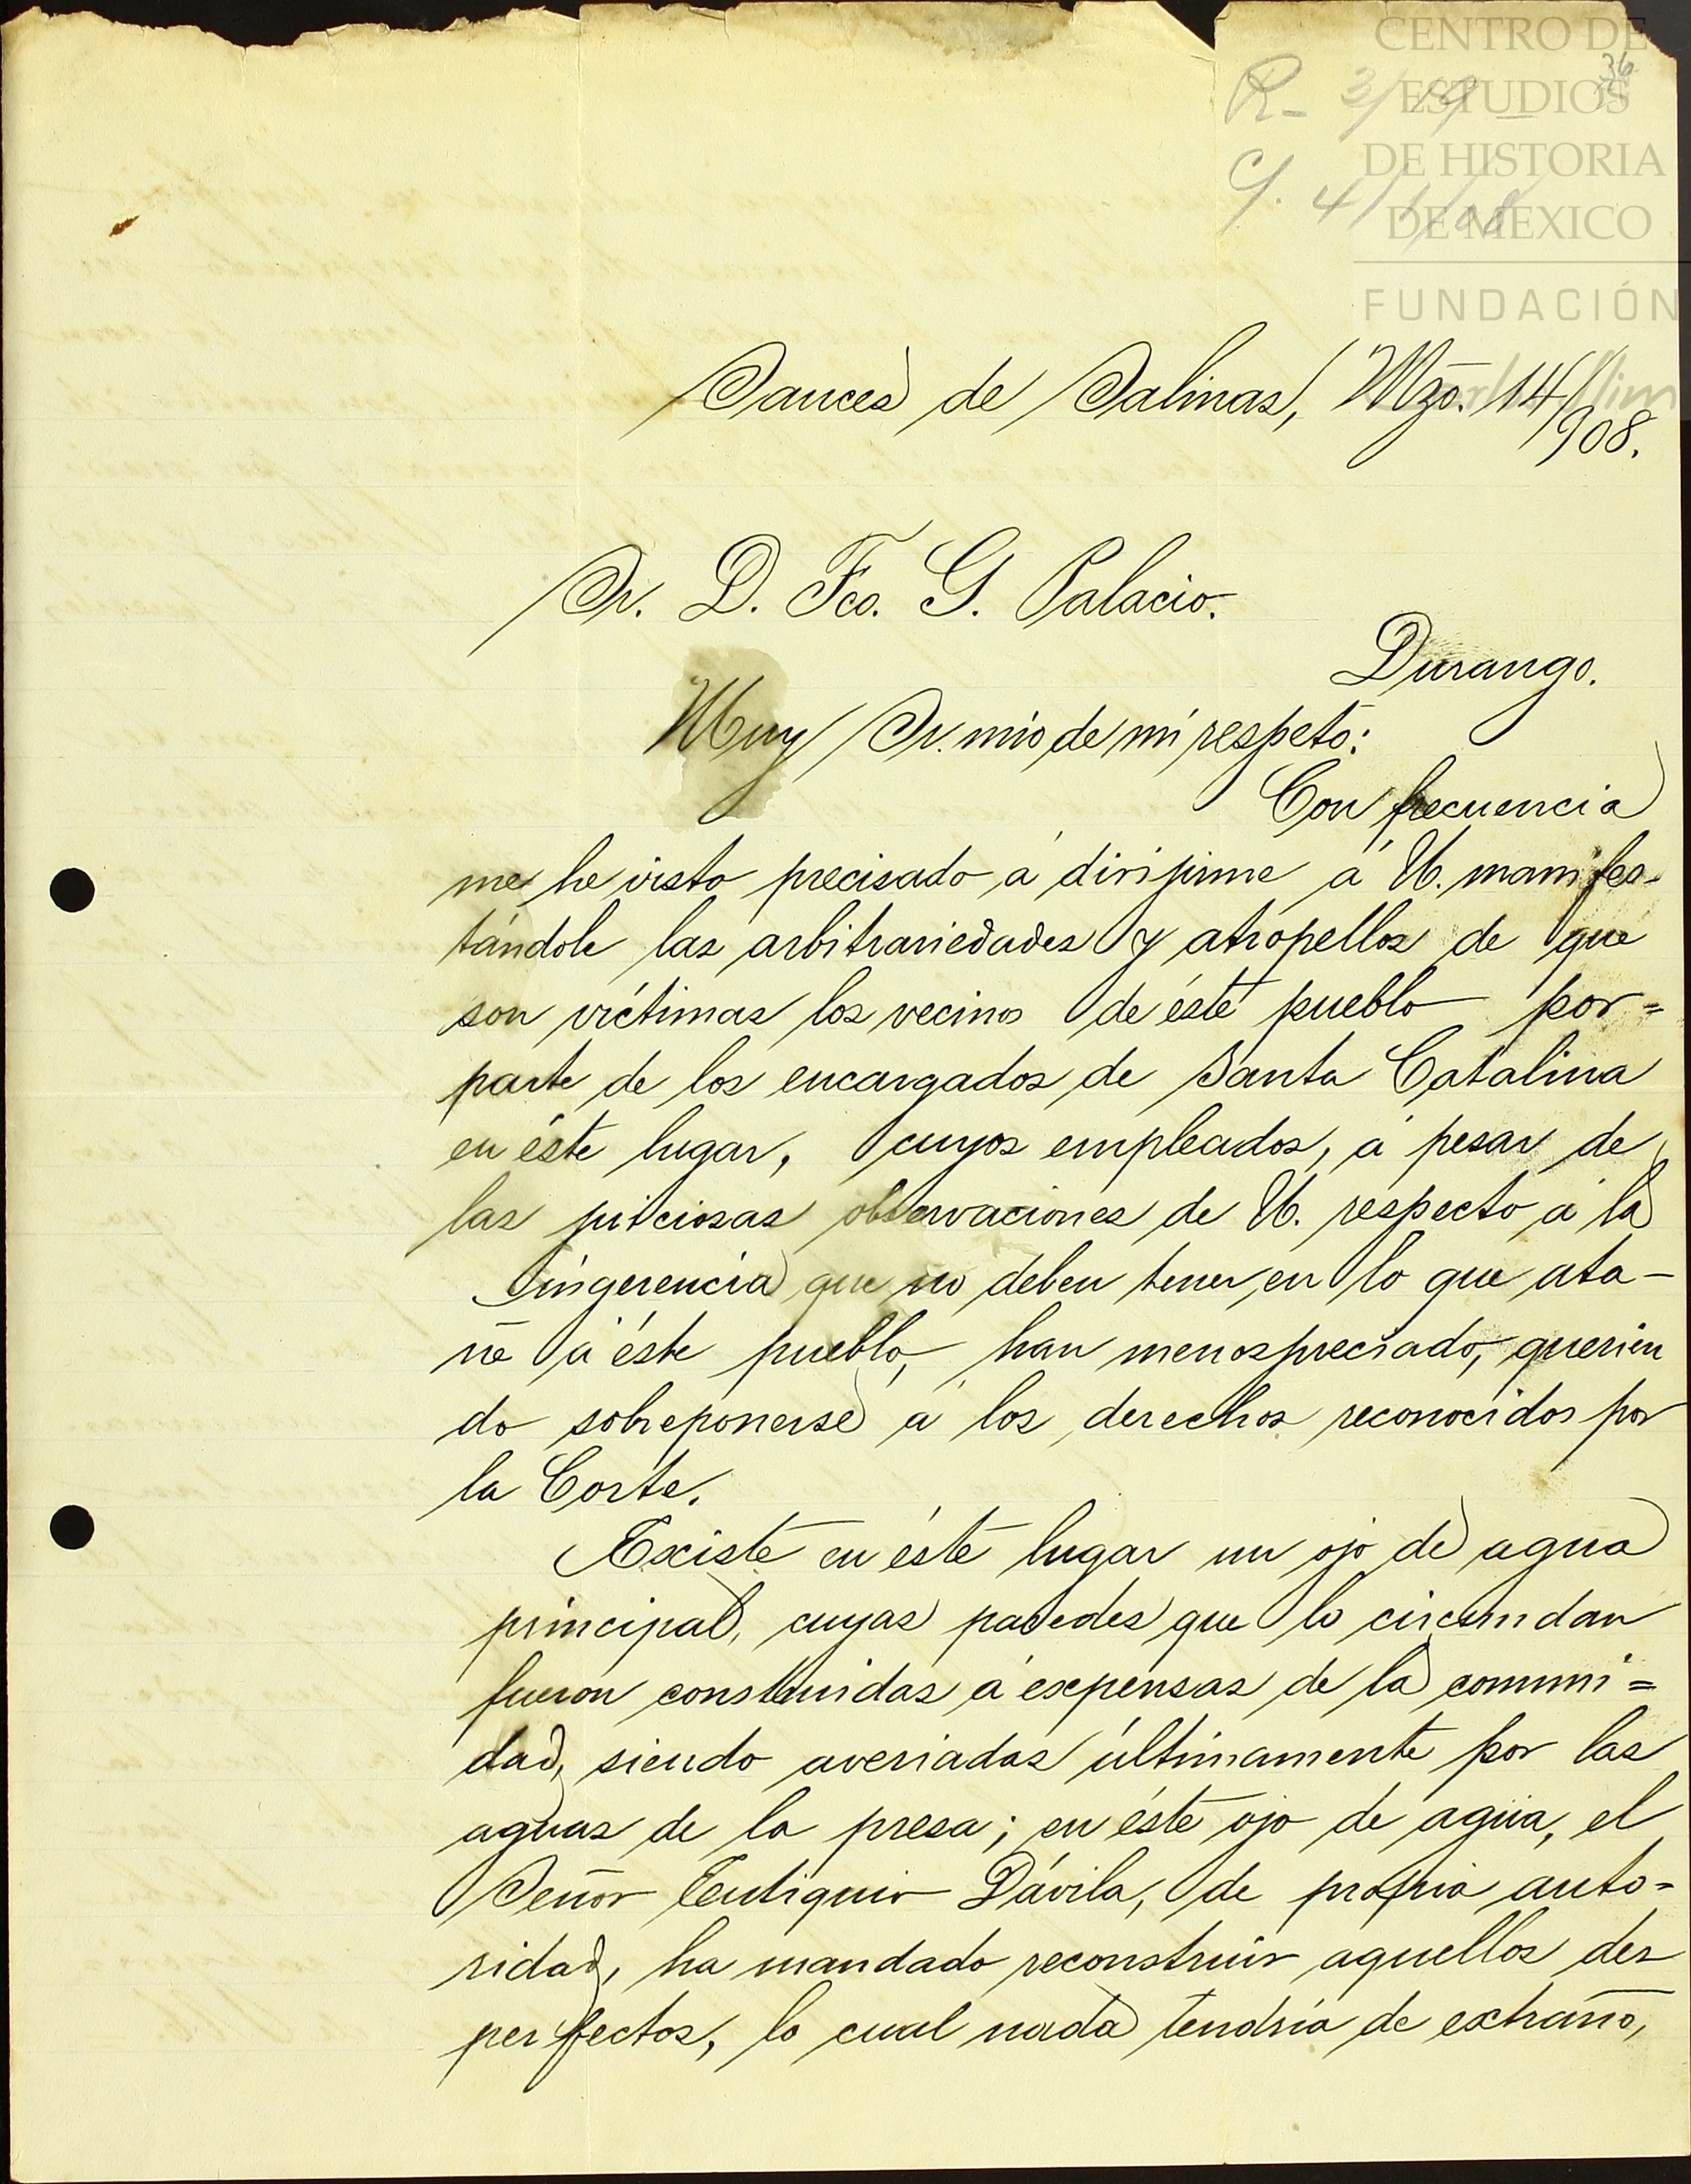 CENTRO DE
ESTUDIOS
DE HISTORIA
DE MEXICO
FUNDACIÓN
36
R- 3/19
C/. 4/1/08
Sauces de Salinas, Mzo. 14/908.
Sr. D. Fco. G. Palacio.
Durango.
Muy Sr. mío de mi respeto:
Con frecuencia
me he visto precisado á dirijirme á U. manifes-
tándole las arbitrariedades y atropellos de que
son víctimas los vecinos de éste pueblo por=
parte de los encargados de Santa Catalina
en éste lugar, cuyos empleados, á pesar de
las juiciosas observaciones de U. respecto á la
ingerencia que no deben tener en lo que ata-
ñe á éste pueblo, han menospreciado, querien
do sobreponerse á los derechos reconocidos por
la Corte.
Existe en éste lugar un ojo de agua
principal, cuyas paredes que lo circundan
fueron construidas á expensas de la comuni=
dad, siendo averiadas últimamente por las
aguas de la presa; en éste ojo de agua, el
Señor Eutiquio Dávila, de propia auto=
ridad, ha mandado reconstruir aquellos des
perfectos, lo cual nada tendría de extraño,